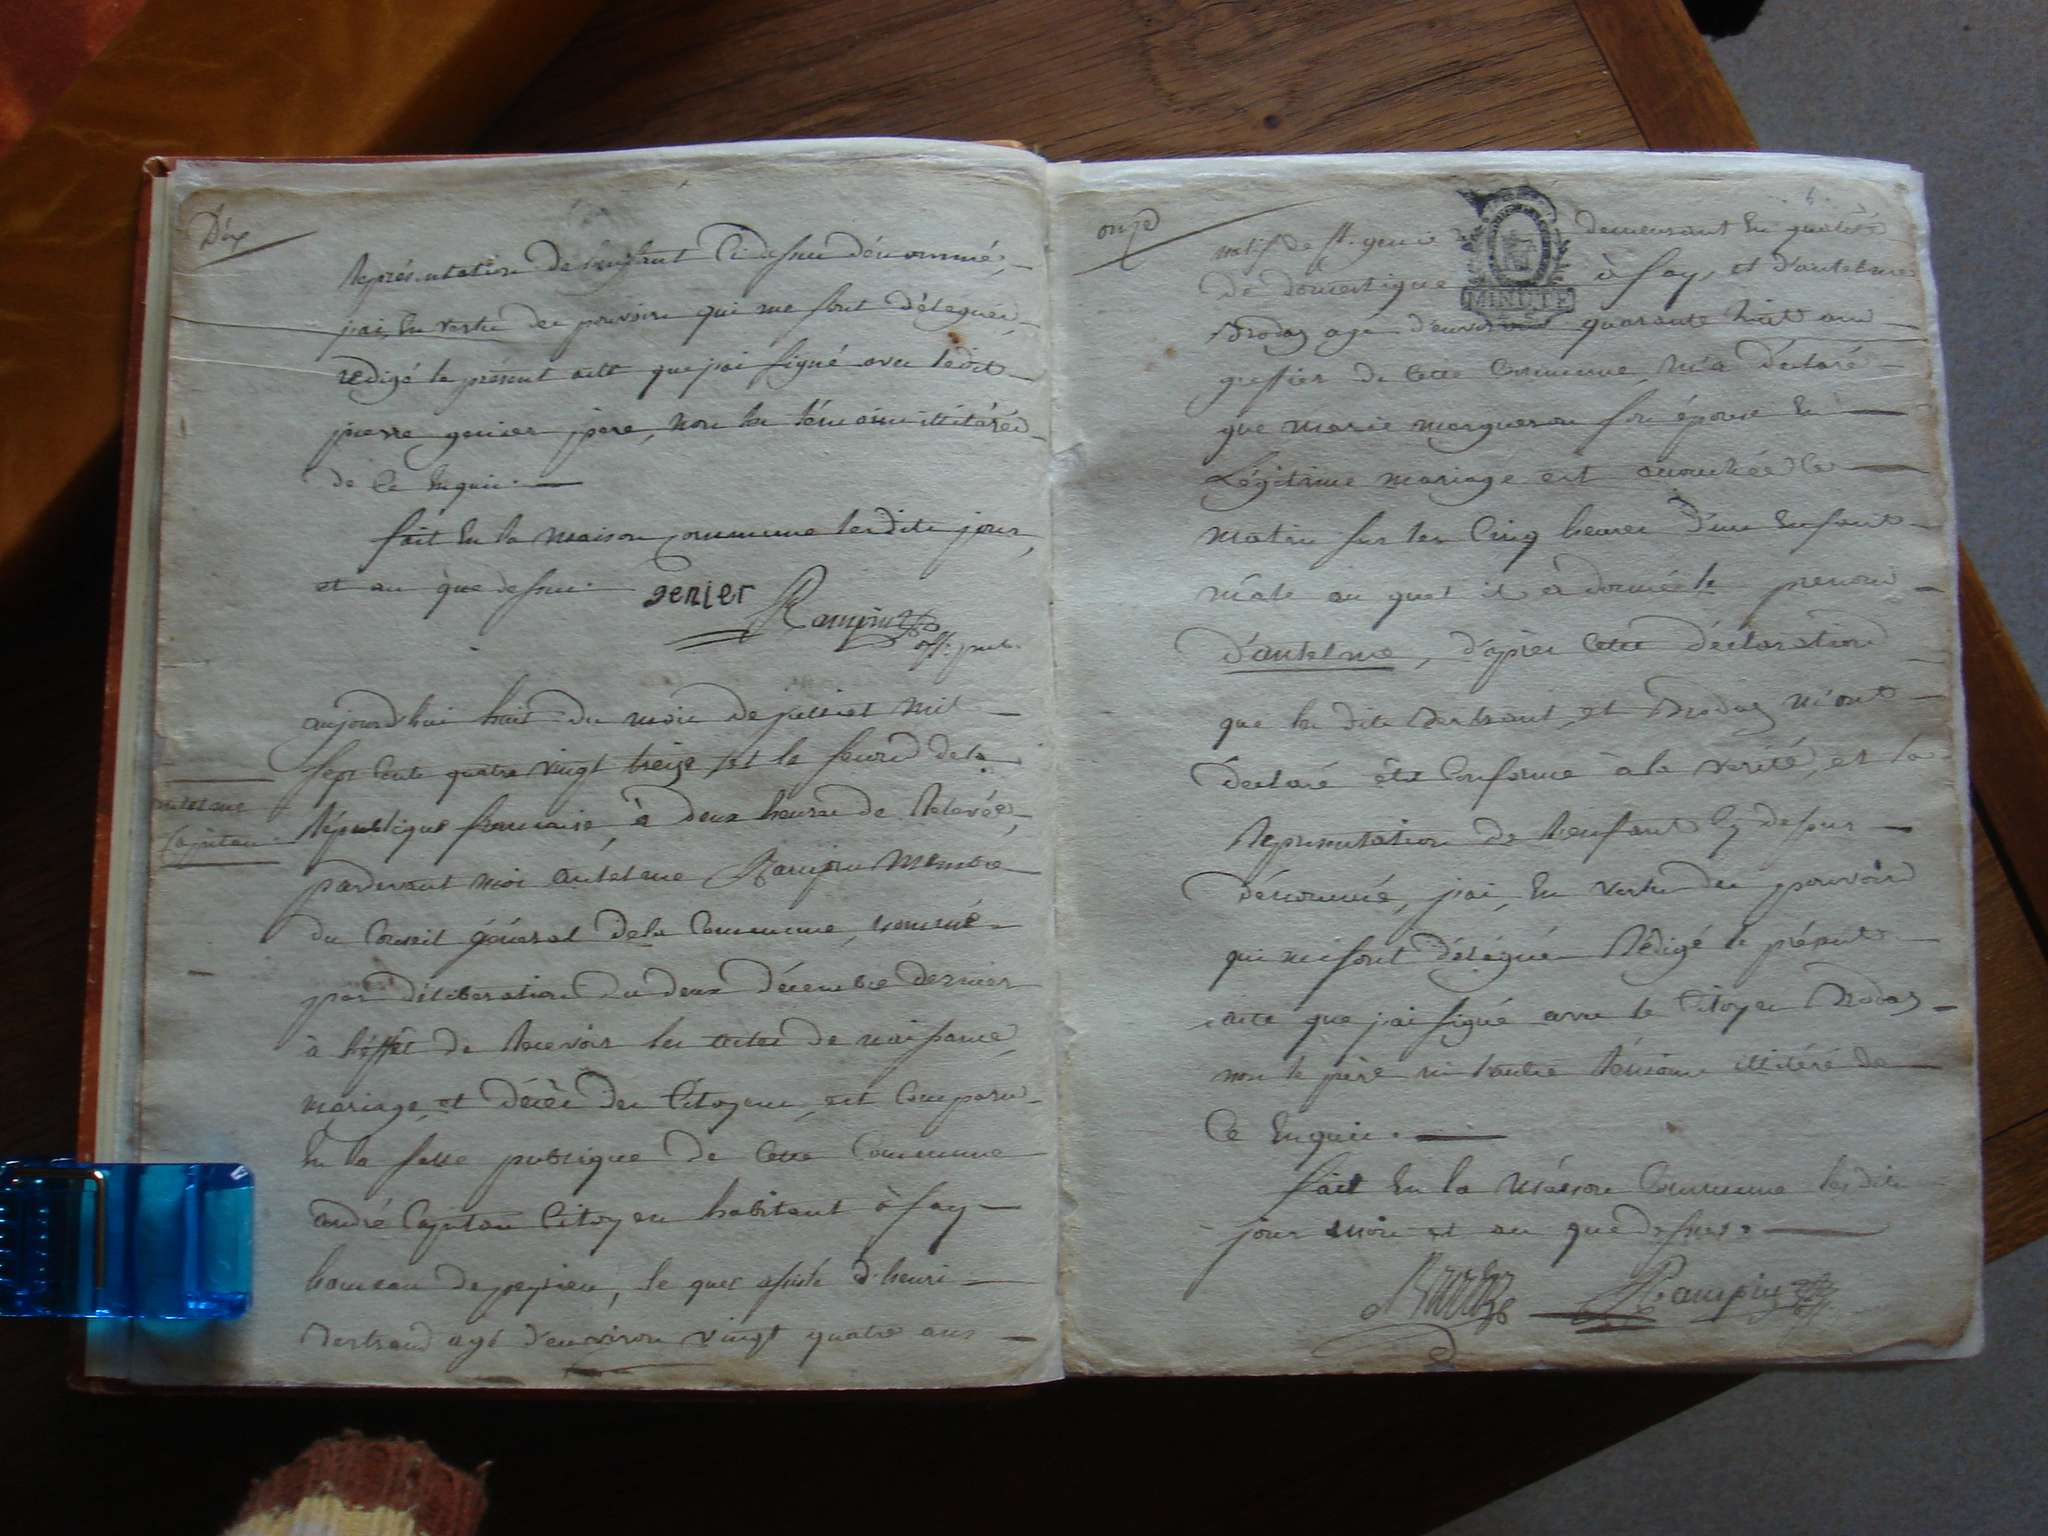 Dix
Représentation de l'enfant Ci dessu dénommé,
j'ai, En vertu des pouvoirs qui me sont délégués,
redigé le présent acte que j'ai signé avec ledit
pierre genier pere, non les témoins illitérés
de Ce Enquis.
fait En la maison Commune lesdits jour,
et an que dessus.
genier Rampin
off. pub.
aujourd'hui huit du mois de juillet mil
sept Cents quatre vingt treize et le second de la
République francaise, à deux heures de Relevée,
pardevant moi antelme Rampin Membre
du Conseil général dela Commune, nomené
par déliberation du deux décembre dernier
à l'éffet de Recevoir les actes de naissance,
mariage, et décès des Citoyens, est Comparu
En la salle publique de Cette Commune
andré Capitan Citoyen habitant à fay
hameau de peysieu, le quel assisté d'henri
Bertrand agé d'environ vingt quatre ans
antelme
Capitan
onze
natif de st. genis demeurant En qualité
de domestique à fay, et d'antelme
Brodaz agé d'environ quarante huit ans
greffier de Cette Commune, m'a déclaré
que marie margueron son épouse En
Légitime mariage est accouchée Ce
matin sur les Cinq heures d'un Enfant
mâle au quel il à donné le prenom
d'antelme, d'après Cette déclaration
que les dits Bertrant, et Brodaz m'ont
déclaré être Conforme à la verité, et la
Representation de l'enfant Cy dessus
dénommé, j'ai, En vertu des pouvoirs
qui me sont délégués Rédigé le présent
acte que j'ai signé avec le Citoyen Brodaz
non le père ni l'autre témoins illitéré de
Ce Enquis.
fait En la Maison Commune lesdits
jour mois et an que dessus.
Brodaz Rampin
MINUTE